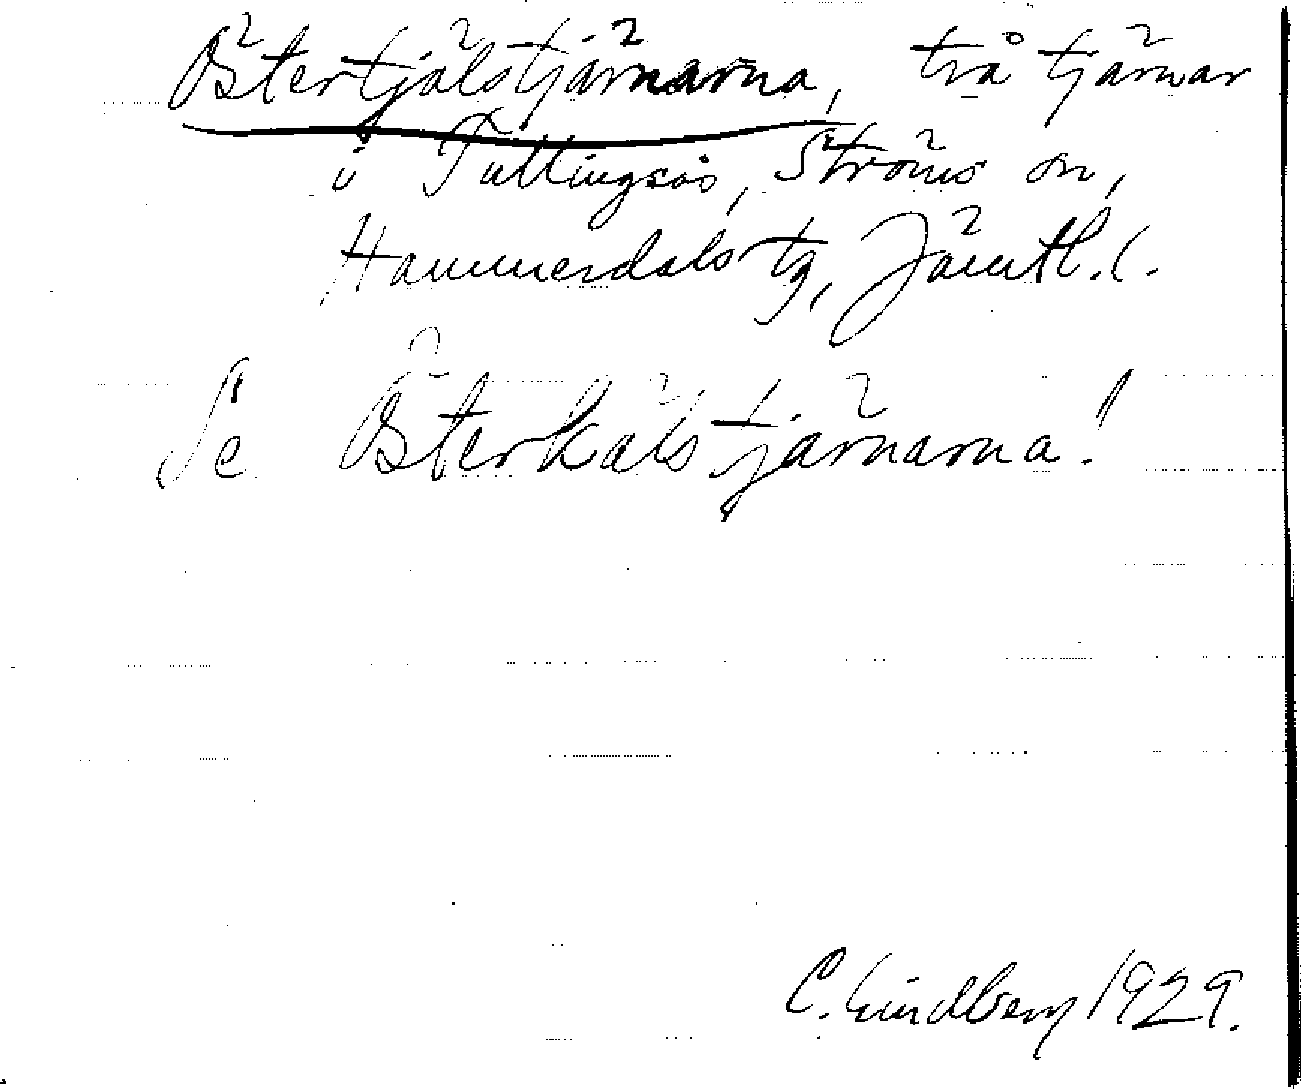 Östertjälstjärnarna, två tjärnar
i Tullingsås, Ströms sn,
Hammerdals tg, Jämtl. l.
Se Österkälstjärnarna!
C. Lindberg 1929.